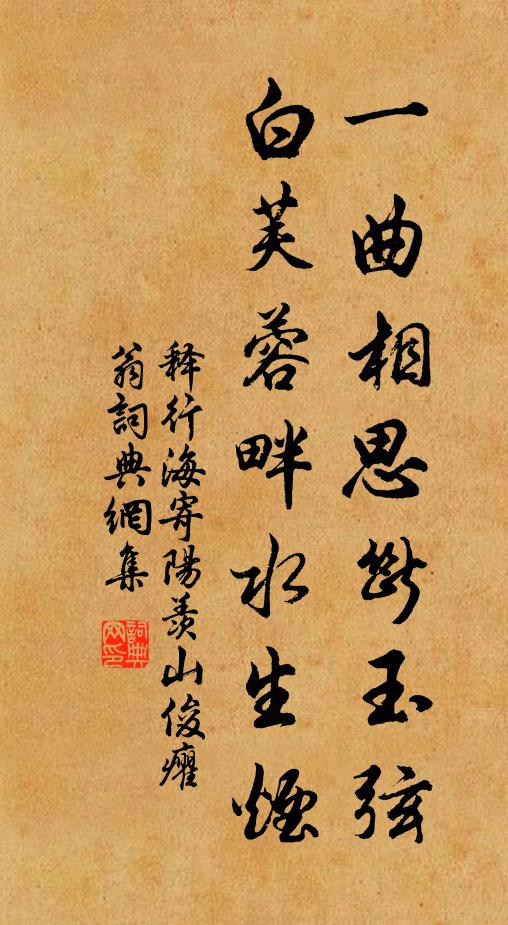 一曲相思断玉弦
白芙蓉畔水生煙
释行海寄陽羨山俊癯
翁詞典網集
詞典网印